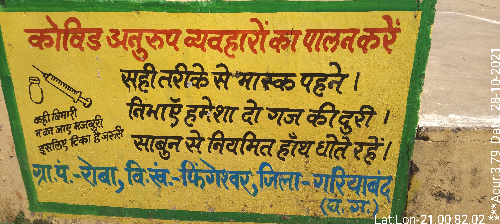 कोविड अनुरुप व्यवहारों का पालन करें
सही तरीके से मास्क पहने ।
निभाएँ हमेशा दो गज की दुरी ।
साबुन से नियमित हाँथ धोते रहें ।
कही बिमारी
न बन जाए मजबूरी
इसलिए टिका है जरुरी
ग्रा.पं.-रोबा, वि.खं.-फिंगेश्वर, जिला-गरियाबंद
(छ.ग.)
Lat:Lon-21.00,82.02